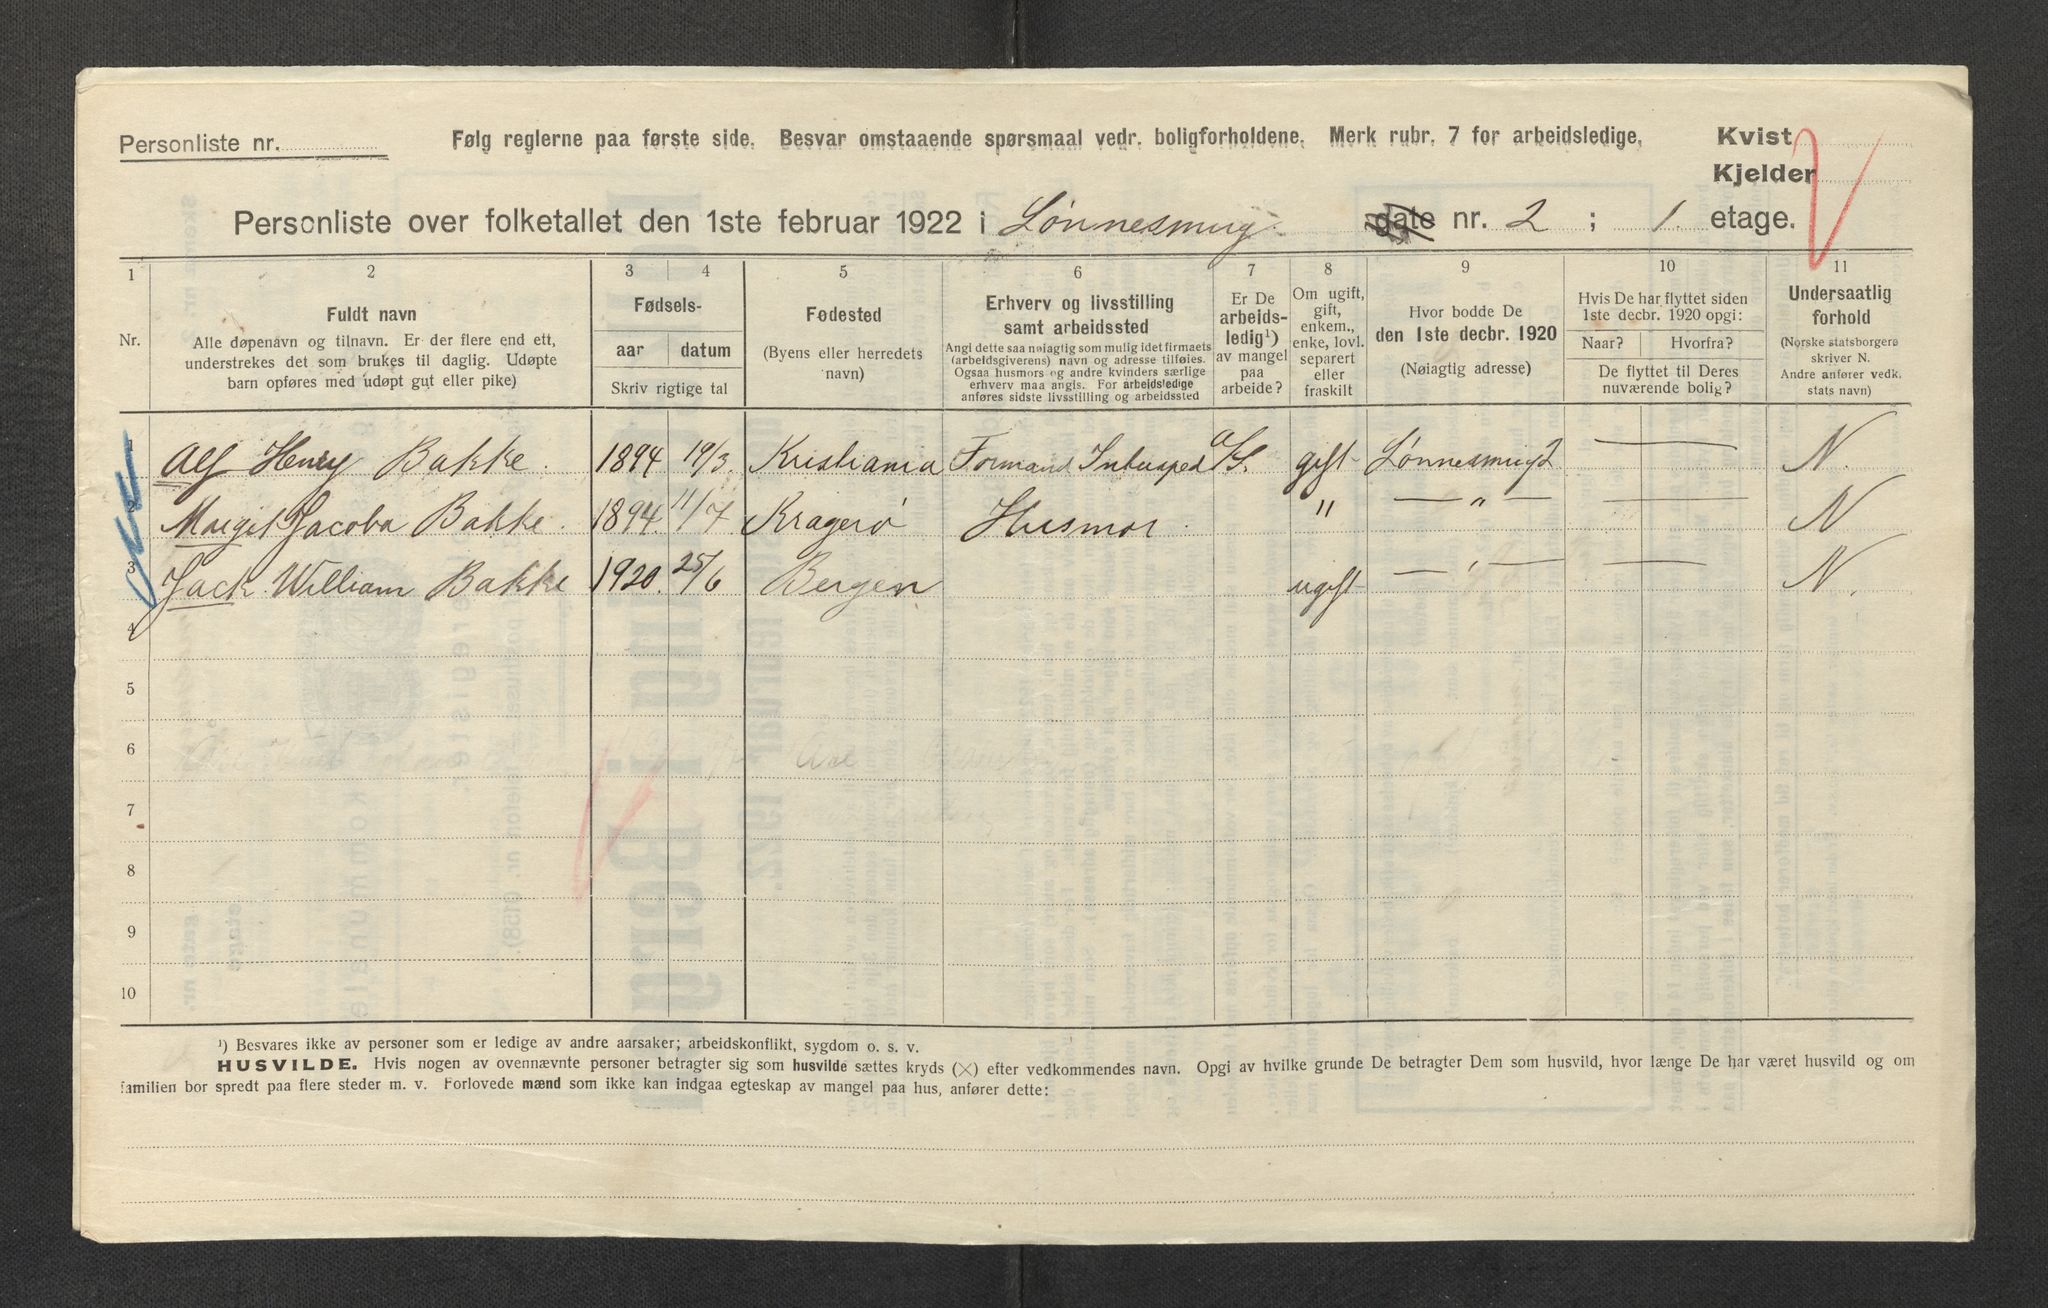 Personliste nr.
Følg reglerne paa første side. Besvar omstaaende spørsmaal vedr. boligforholdene. Merk rubr. 7 for arbeidsledige.
Kvist
Kjelder
Personliste over folketallet den 1ste februar 1922 i Lønnesmug. gate nr. 2 ; 1. etage.
1 2 3 4 5 6 7 8 9 10 11
Nr.
Fuldt navn
Alle døpenavn og tilnavn. Er der flere end ett,
understrekes det som brukes til daglig. Udøpte
barn opføres med udøpt gut eller pike)
Fødsels-
aar datum
Skriv rigtige tal
Fødested
(Byens eller herredets
navn)
Erhverv og livsstilling
samt arbeidssted
Angi dette saa nøiagtig som mulig idet firmaets
(arbeidsgiverens) navn og adresse tilføies.
Ogsaa husmors og andre kvinders særlige
erhverv maa angis. For arbeidsledige
anføres sidste livsstilling og arbeidssted
Er De
arbeids-
ledig¹)
av mangel
paa
arbeide?
Om ugift,
gift,
enkem.,
enke, lovl.
separert
eller
fraskilt
Hvor bodde De
den 1ste decbr. 1920
(Nøiagtig adresse)
Hvis De har flyttet siden
1ste decbr. 1920 opgi:
Naar? Hvorfra?
De flyttet til Deres
nuværende bolig?
Undersaatlig
forhold
(Norske statsborgere
skriver N.
Andre anfører vedk.
stats navn)
1 Alf Henry Bakke. 1894 19/3. Kristiania Formand A/S. gift Lønnesmug 2 — N.
2 Margit Jacoba Bakke. 1894. 11/7 Kragerø Husmor. " — " — — N
3 Jack William Bakke 1920. 25/6 Bergen ugift — " — — N.
4
5
6
7
8
9
10
¹) Besvares ikke av personer som er ledige av andre aarsaker; arbeidskonflikt, sygdom o. s. v.
HUSVILDE. Hvis nogen av ovennævnte personer betragter sig som husvilde sættes kryds (×) efter vedkommendes navn. Opgi av hvilke grunde De betragter Dem som husvild, hvor længe De har været husvild og om
familien bor spredt paa flere steder m. v. Forlovede mænd som ikke kan indgaa egteskap av mangel paa hus, anfører dette: